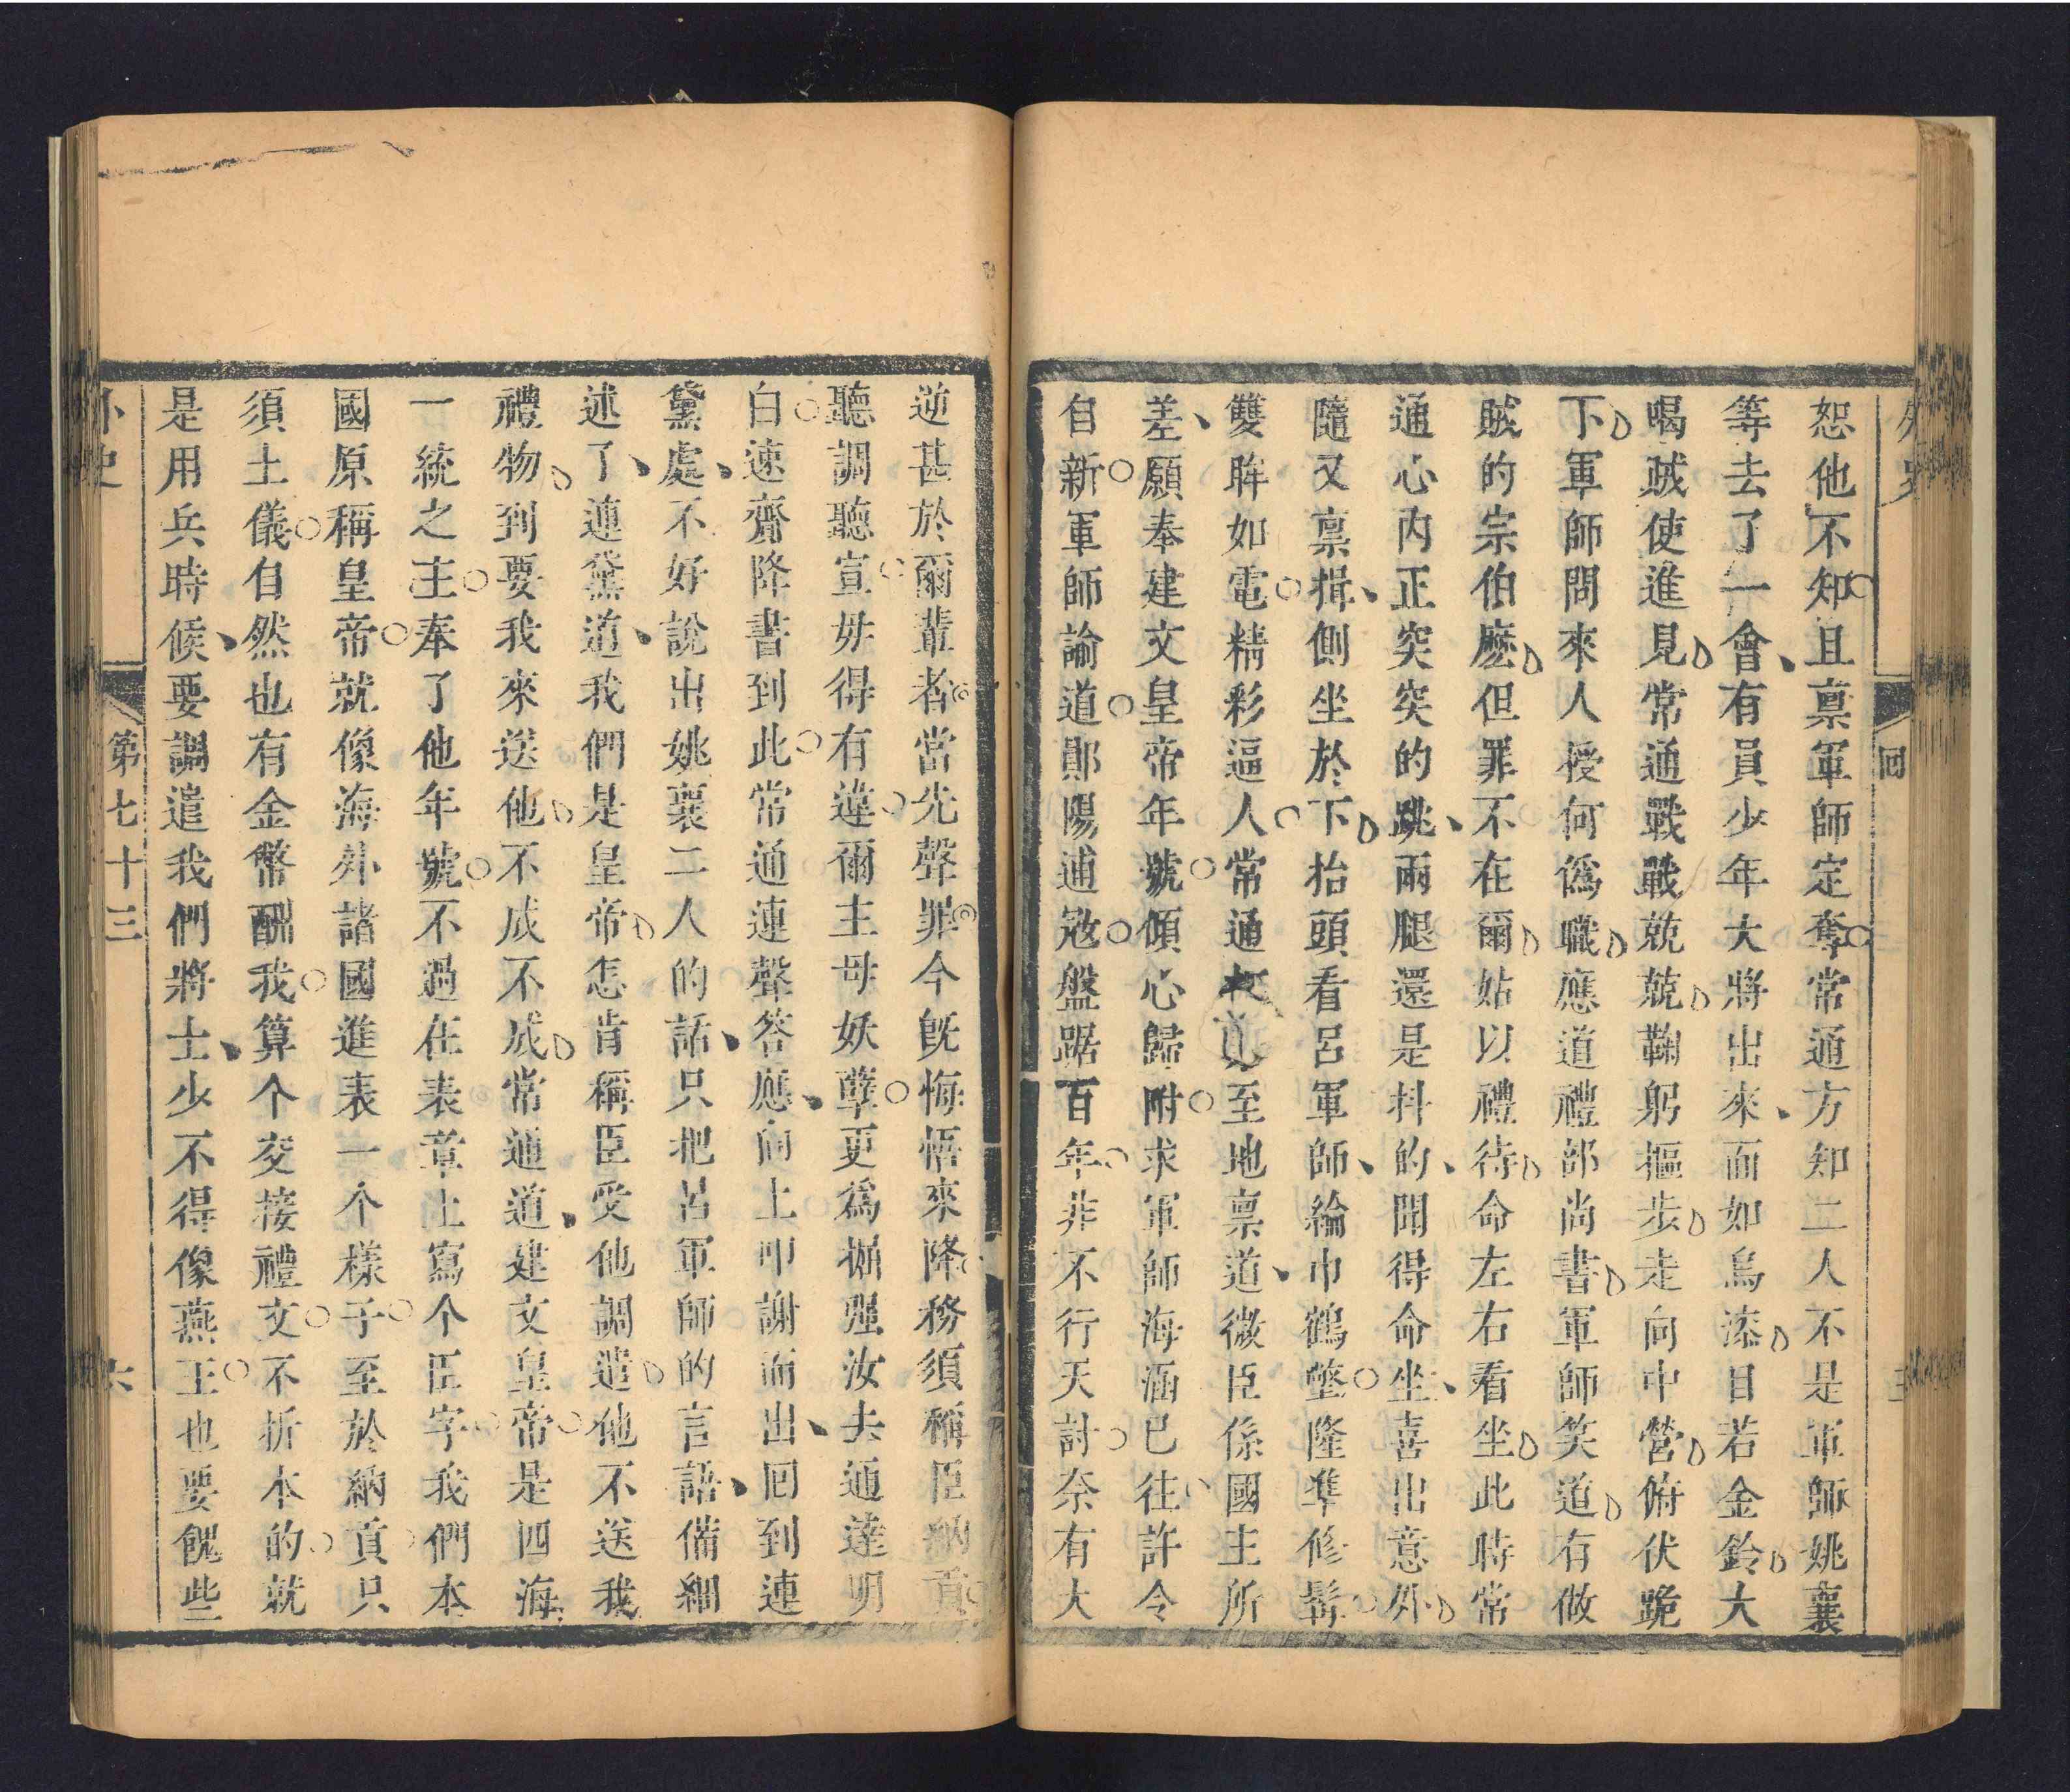 恕他不知且稟軍師定奪常通方知二人不是軍師姚襄
等去了一會有員少年大將出來面如烏漆目若金鈴大
喝賊使進見常通戰戰兢兢鞠躬摳步走向中營俯伏跪
下軍師問來人授何僞職應道禮部尚書軍師笑道有做
賊的宗伯麽但罪不在爾姑以禮待命左右看坐此時常
通心內正突突的跳兩腿還是抖的聞得命坐喜出意外
隨又稟揖側坐於下抬頭看呂軍師綸巾鶴氅隆準修髯
雙眸如電精彩逼人常通 道至地稟道微臣係國主所
差願奉建文皇帝年號傾心歸附求軍師海涵已往許令
自新軍師諭道鄖陽逋寇盤踞百年非不行天討奈有大
回
逆甚於爾輩者當先聲罪今旣悔悟來降務須稱臣納貢
聽調聽宣毋得有違爾主母妖孽更爲 强汝去通達明
白速齎降書到此常通連聲答應向上叩謝而出囘到連
黛處不好說出姚襄二人的話只把呂軍師的言語備細
述了連黛道我們是皇帝怎肯稱臣受他調遣他不送我
禮物到要我來送他不成不成常通道建文皇帝是四海
一統之主奉了他年號不過在表章上寫个臣字我們本
國原稱皇帝就像海外諸國進表一个樣子至於納貢只
須土儀自然也有金幣酬我算个交接禮文不折本的就
是用兵時候要調遣我們將士少不得像燕王也要餽些
外史
第七十三
六